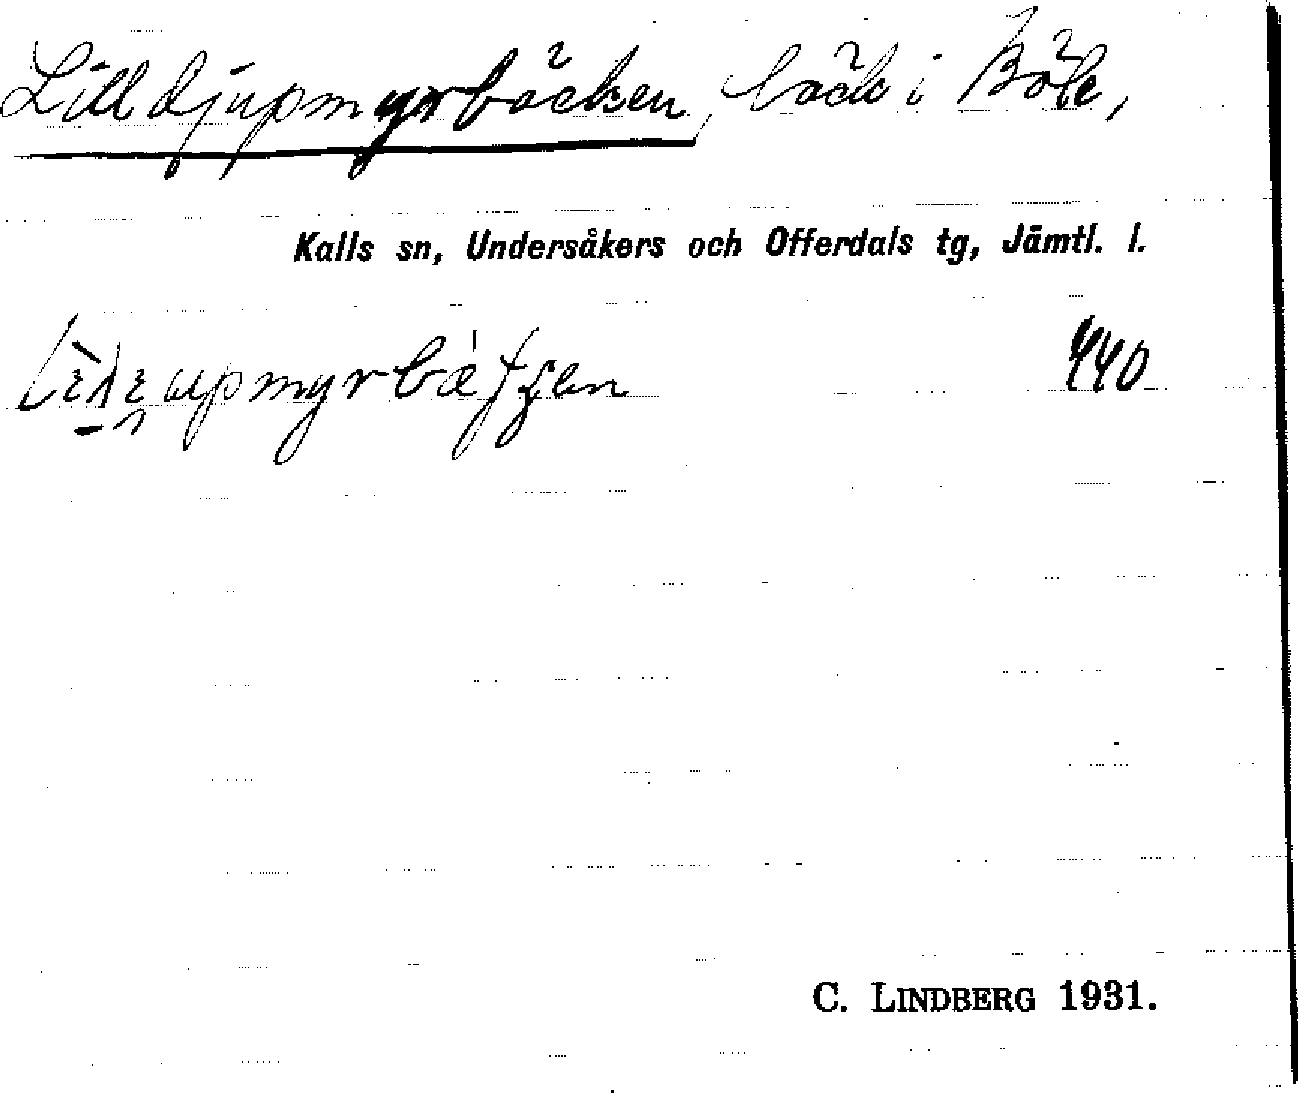 Lilldjupmyrbäcken, bäck i Böle,
Kalls sn, Undersåkers och Offerdals tg, Jämtl. l.
440
C. LINDBERG 1931.